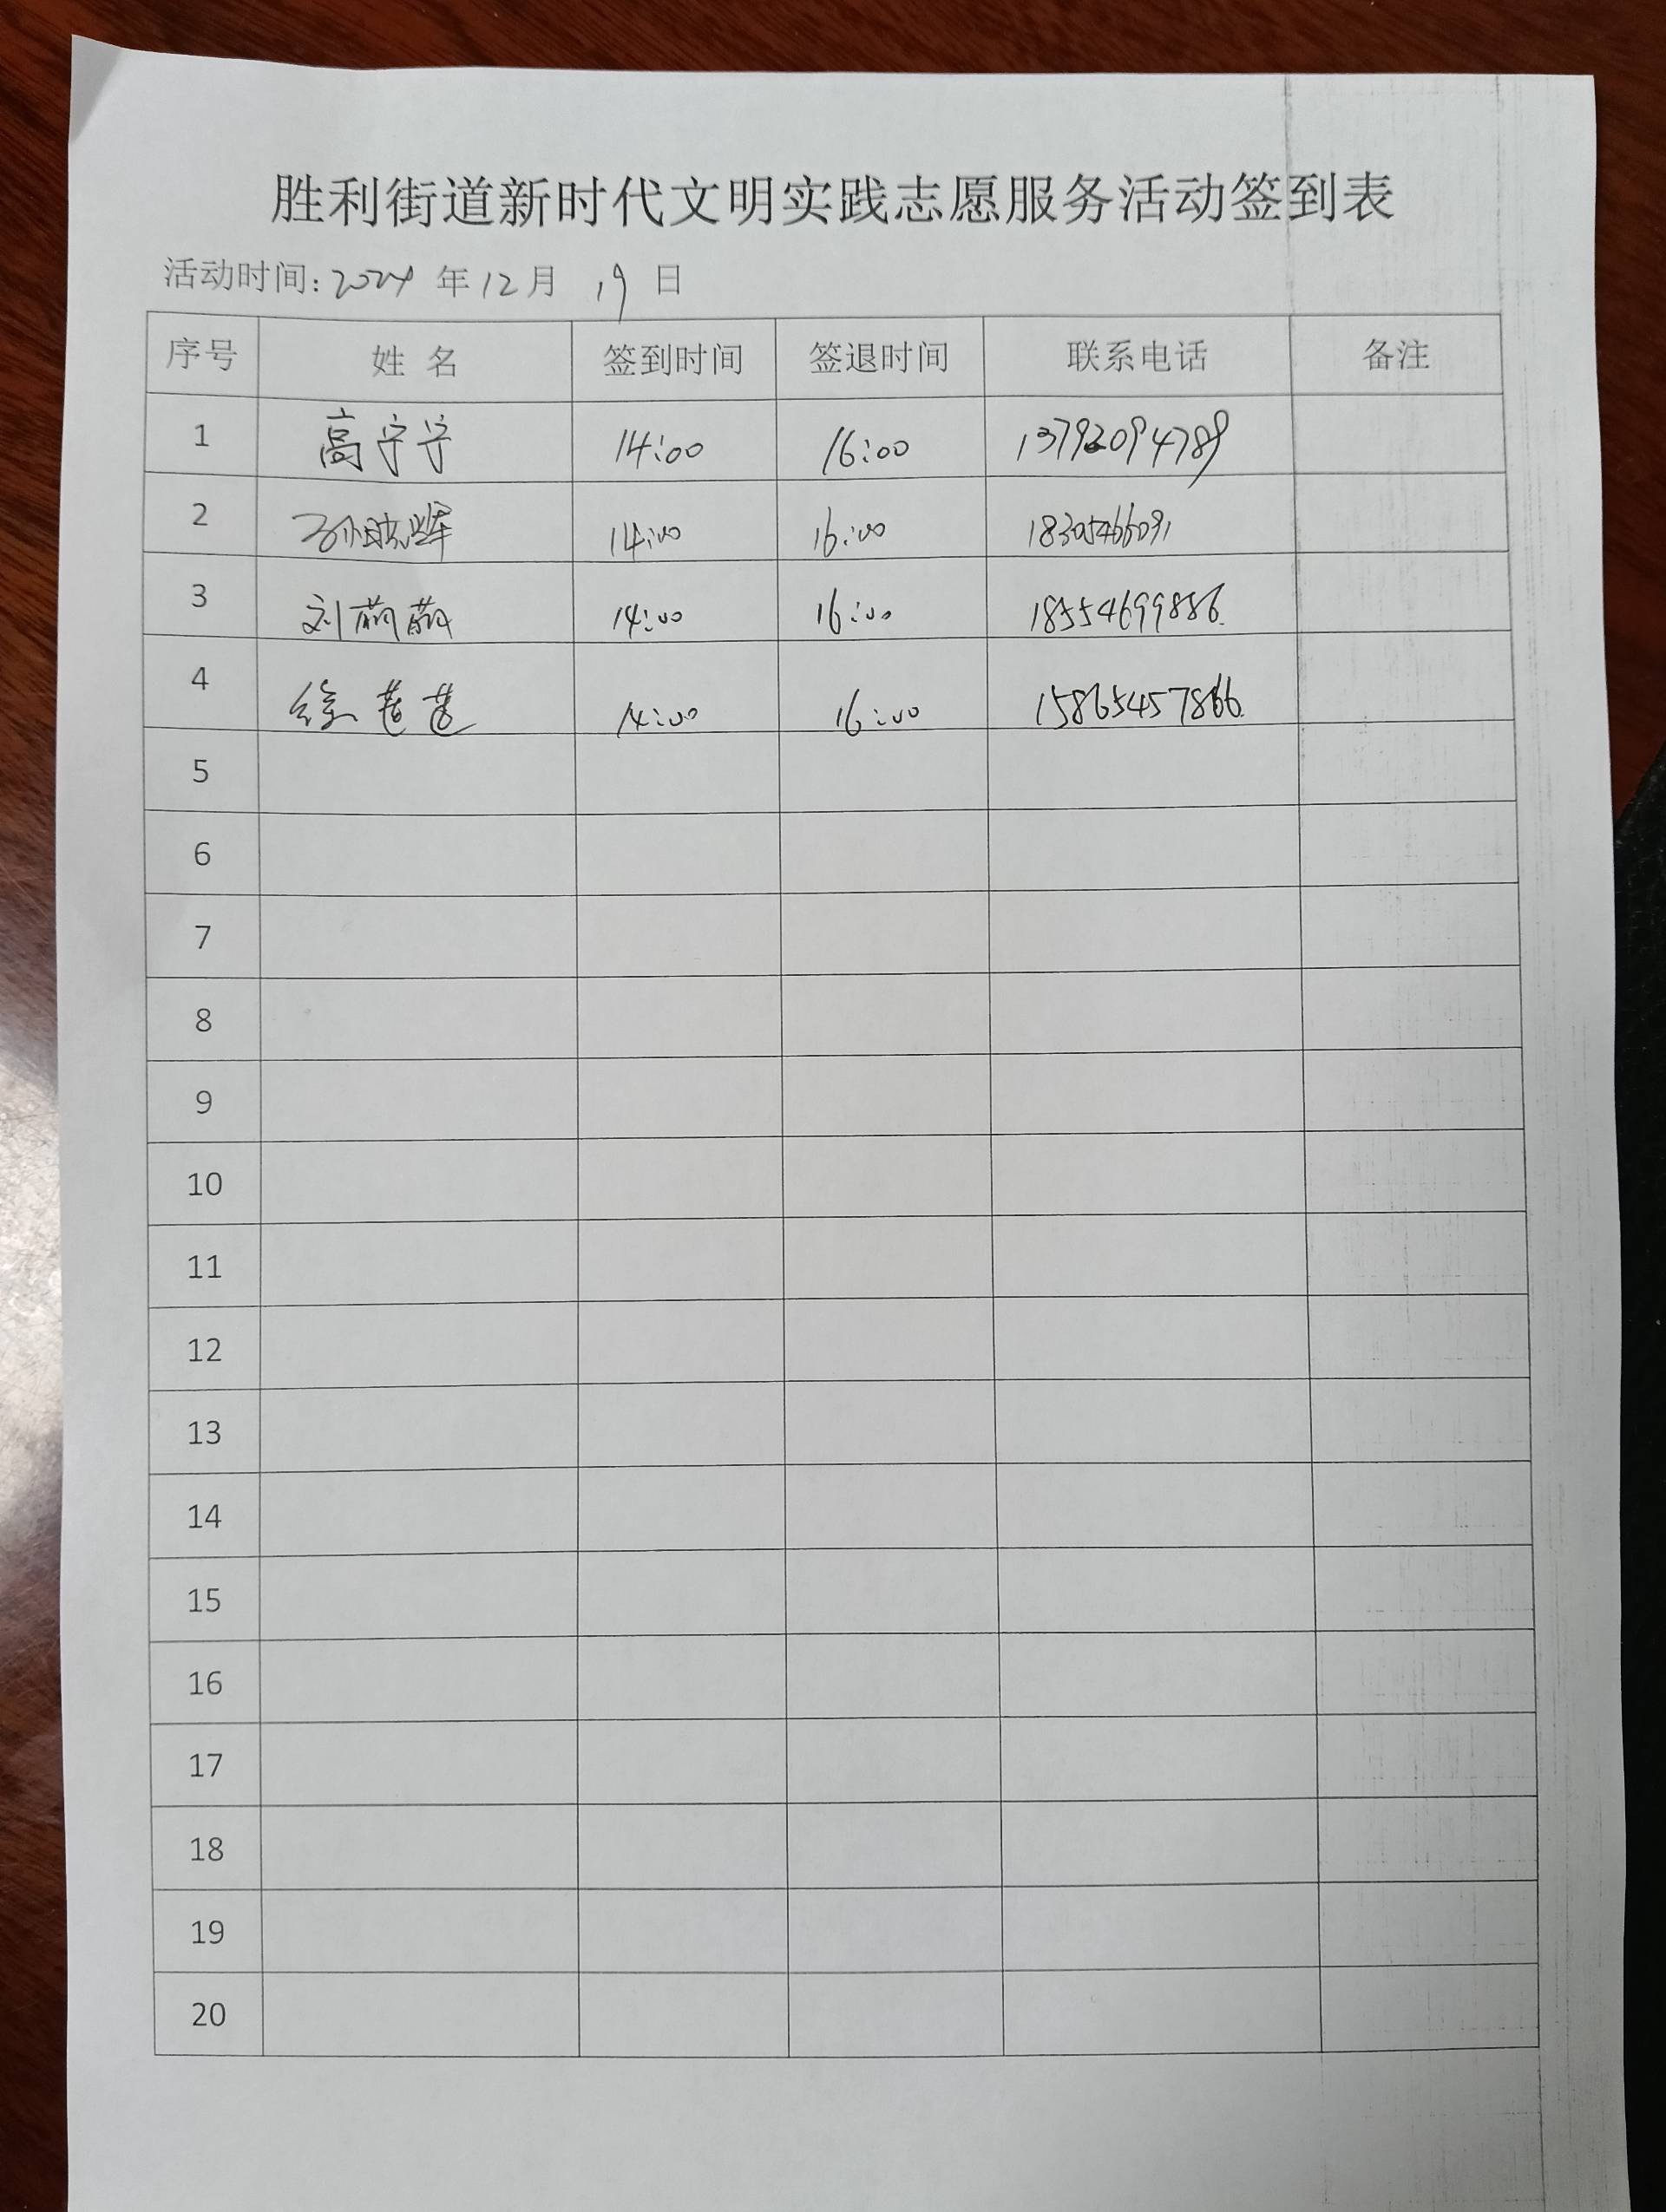 胜利街道新时代文明实践志愿服务活动签到表
活动时间: 2024 年 12 月 19 日
序号 姓 名 签到时间 签退时间 联系电话 备注
1 高宁宁 14:00 16:00 13792094789
2 孙晓辉 14:00 16:00 18305466091
3 刘萌萌 14:00 16:00 18554699886
4 徐 14:00 16:00 15865457866
5
6
7
8
9
10
11
12
13
14
15
16
17
18
19
20